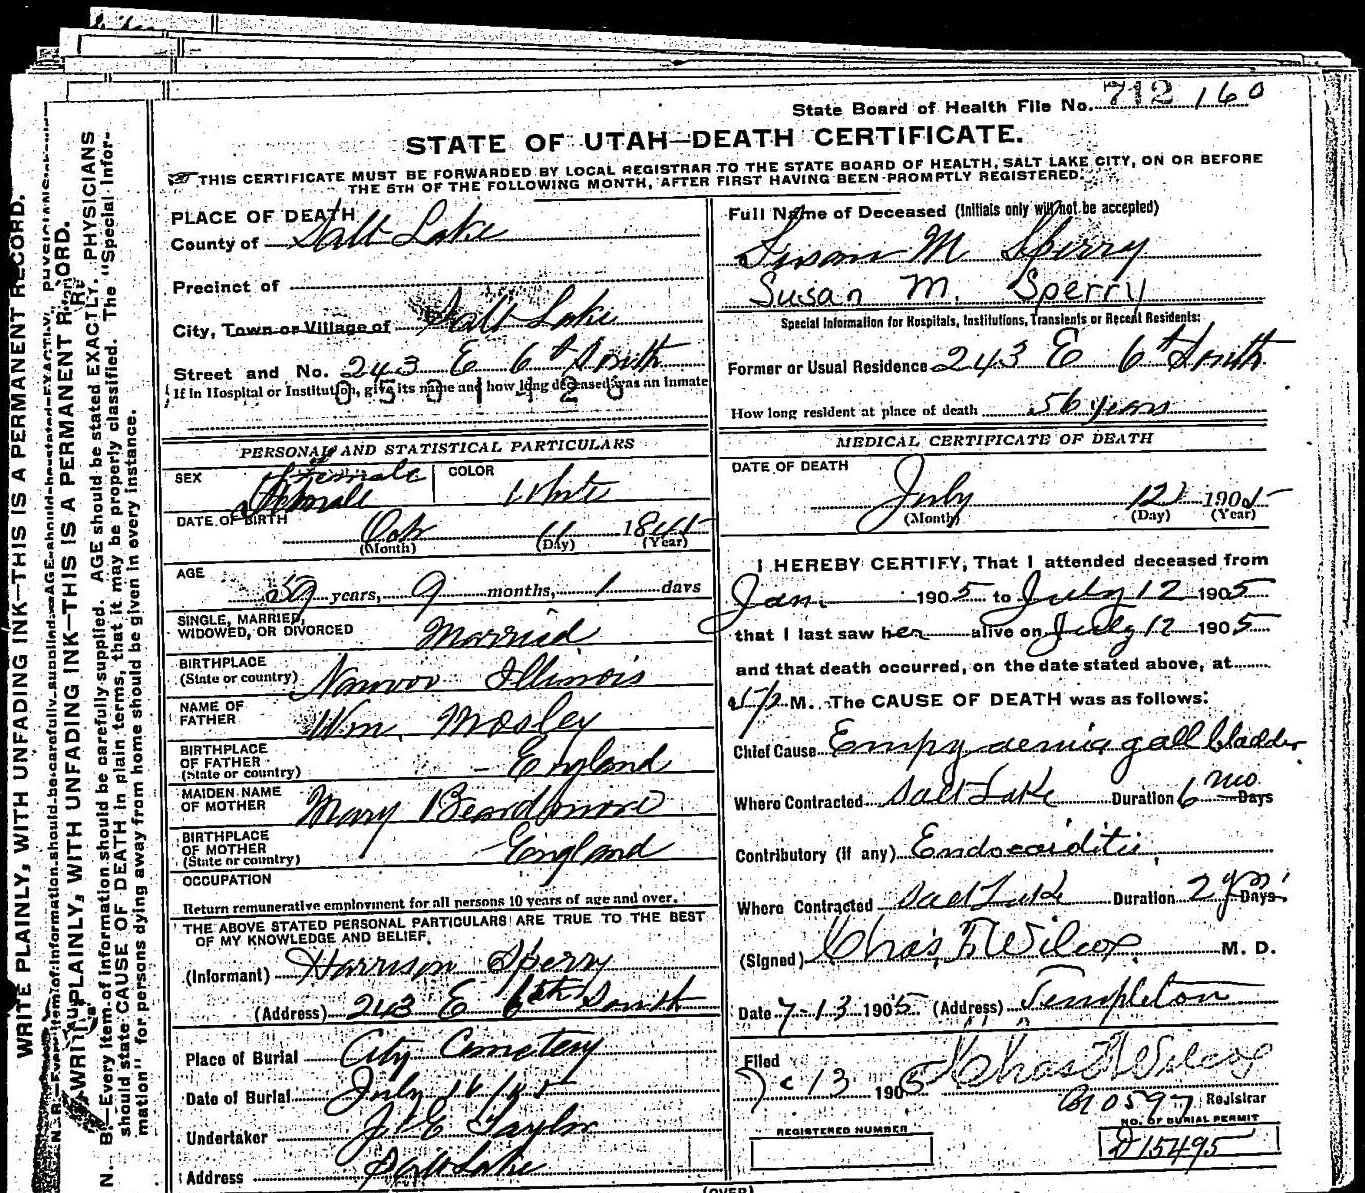 State Board of Health File No. 712 160
STATE OF UTAH—DEATH CERTIFICATE.
THIS CERTIFICATE MUST BE FORWARDED BY LOCAL REGISTRAR TO THE STATE BOARD OF HEALTH, SALT LAKE CITY, ON OR BEFORE
THE 5TH OF THE FOLLOWING MONTH, AFTER FIRST HAVING BEEN PROMPTLY REGISTERED.
PLACE OF DEATH
County of Salt Lake
Precinct of
City, Town or Village of Salt Lake
Street and No. 243 E 6th South
If in Hospital or Institution, give its name and how long deceased was an inmate
PERSONAL AND STATISTICAL PARTICULARS
SEX Female Female COLOR White
DATE OF BIRTH Oct 11 1845
(Month) (Day) (Year)
AGE 59 years, 9 months, 1 days
SINGLE, MARRIED,
WIDOWED, OR DIVORCED Married
BIRTHPLACE
(State or country) Nauvoo Illinois
NAME OF
FATHER Wm. Mosley
BIRTHPLACE
OF FATHER
(State or country) England
MAIDEN NAME
OF MOTHER Mary
BIRTHPLACE
OF MOTHER
(State or country) England
OCCUPATION
Return remunerative employment for all persons 10 years of age and over.
THE ABOVE STATED PERSONAL PARTICULARS ARE TRUE TO THE BEST
OF MY KNOWLEDGE AND BELIEF.
(Informant) Harrison Sperry
(Address) 243 E 6th South
Place of Burial City Cemetery
Date of Burial July
Undertaker J E Taylor
Address Salt Lake
Full Name of Deceased (Initials only will not be accepted)
Susan M Sperry
Susan M. Sperry
Special Information for Hospitals, Institutions, Transients or Recent Residents:
Former or Usual Residence 243 E 6th South
How long resident at place of death 56 years
MEDICAL CERTIFICATE OF DEATH
DATE OF DEATH
July 12 1905
(Month) (Day) (Year)
I HEREBY CERTIFY, That I attended deceased from
Jan. 1905 to July 12 1905
that I last saw her alive on July 12 1905
and that death occurred, on the date stated above, at
M. The CAUSE OF DEATH was as follows:
Chief Cause Empyaemia gall bladder
Where Contracted Salt Lake Duration 6 mo Days
Contributory (if any) Endocarditis
Where Contracted Salt Lake Duration 2 yrs Days
(Signed) Chas F Wilcox M. D.
Date 7-13 1905 (Address) Templeton
Filed
7-13 1905 Chas F Wilcox
Registrar
NO. OF BURIAL PERMIT
REGISTERED NUMBER
D15495
(OVER)
WRITE PLAINLY, WITH UNFADING INK—THIS IS A PERMANENT RECORD.
WRITE PLAINLY, WITH UNFADING INK—THIS IS A PERMANENT RECORD.
N. B.—Every item of information should be carefully supplied. AGE should be stated EXACTLY. PHYSICIANS
should state CAUSE OF DEATH in plain terms, that it may be properly classified. The "Special Infor-
mation" for persons dying away from home should be given in every instance.